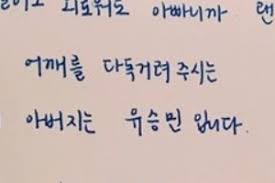 외로워도 아빠니까 랜
어깨를 다독거려 주시는
아버지는 유승민 입니다.